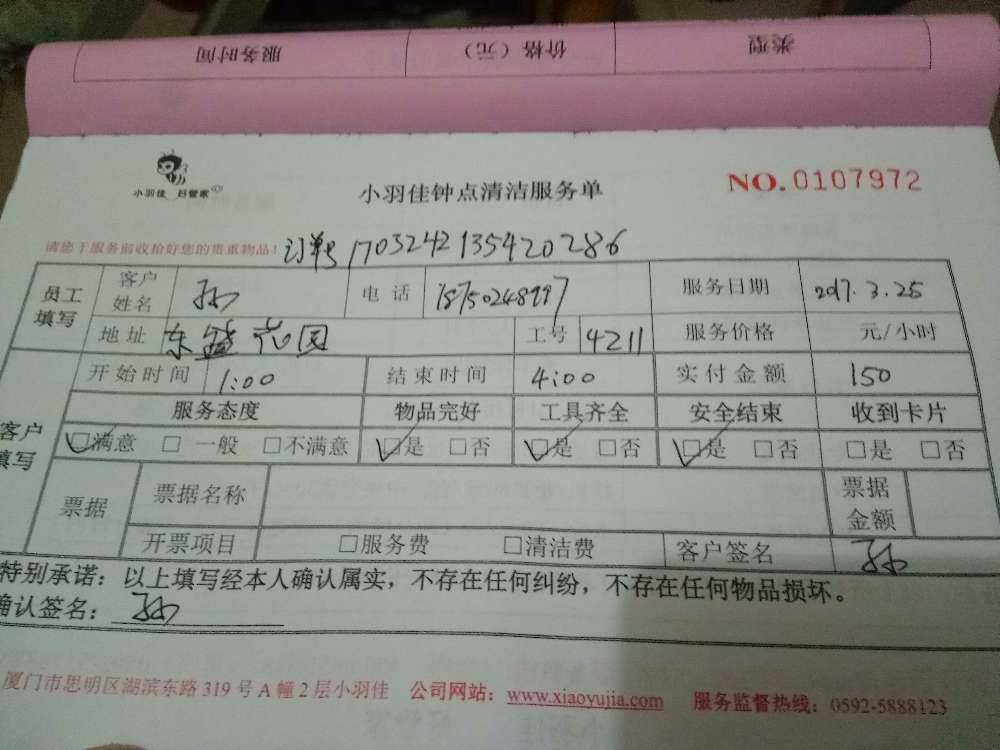 类型 价格（元） 服务时间
小羽佳 好管家
小羽佳钟点清洁服务单
NO.0107972
请您于服务前收拾好您的贵重物品！ 订单号 170324213542 0286
员工填写 客户姓名 电话 服务日期 2017.3.25
地址 东盛花园 工号 4211 服务价格 元/小时
客户填写 开始时间 1:00 结束时间 4:00 实付金额 150
服务态度 物品完好 工具齐全 安全结束 收到卡片
☑满意 □一般 □不满意 ☑是 □否 ☑是 □否 ☑是 □否 □是 □否
票据 票据名称 票据金额
开票项目 □服务费 □清洁费 客户签名
特别承诺：以上填写经本人确认属实，不存在任何纠纷，不存在任何物品损坏。
确认签名：
厦门市思明区湖滨东路319号A幢2层小羽佳 公司网站：www.xiaoyujia.com 服务监督热线：0592-5888123